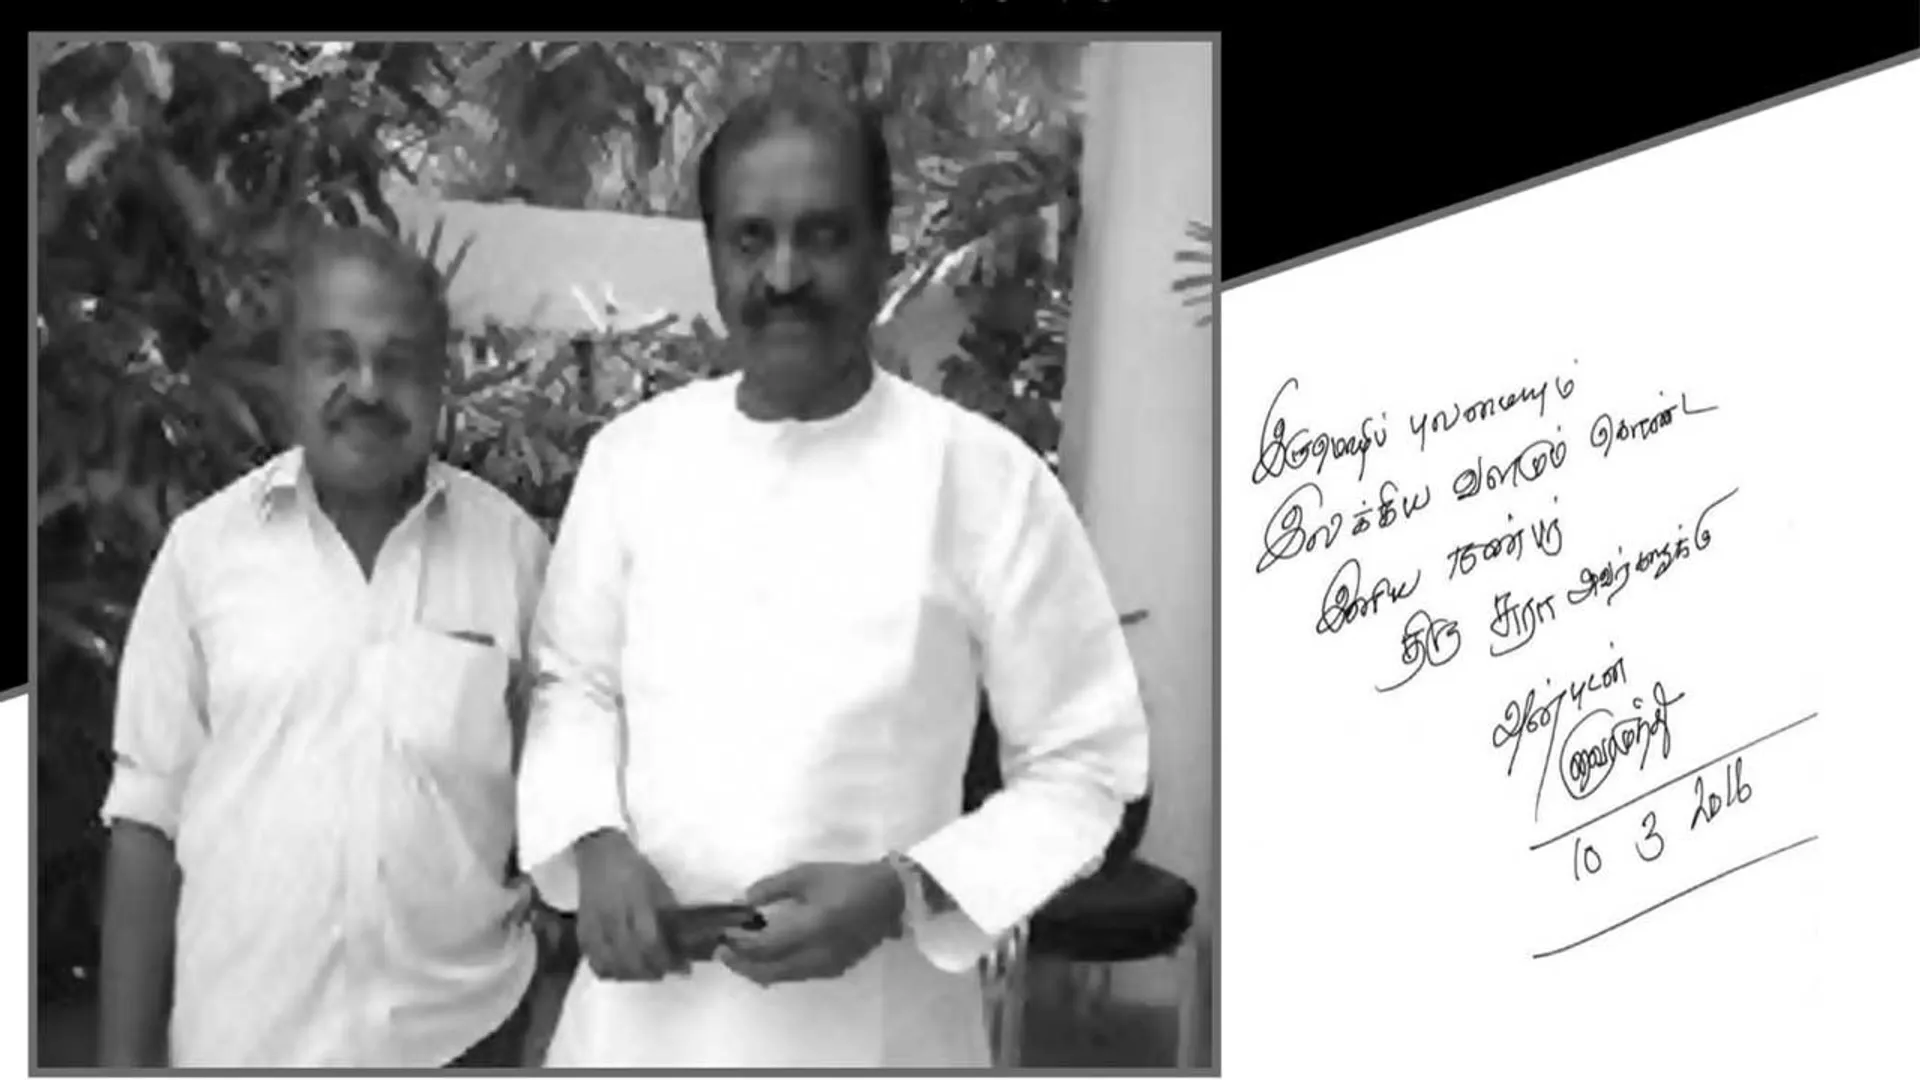 இருமொழிப் புலமையும்
இலக்கிய வளமும் கொண்ட
இனிய நண்பர்
திரு சுரா அவர்களுக்கு
அன்புடன்
வைரமுத்து
10 3 2016